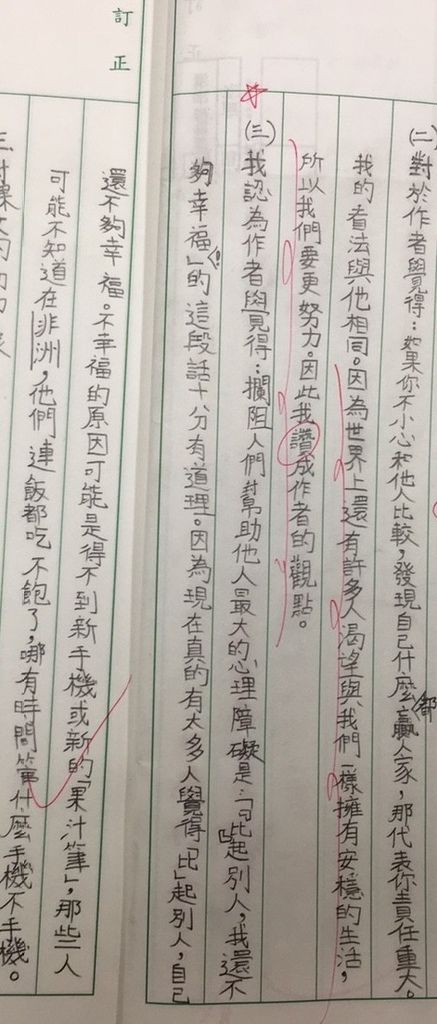 (二)對於作者覺得:如果你不小心和他人比較,發現自己什麼都贏人家,那代表你責任重大。
我的看法與他相同。因為世界上還有許多人渴望與我們一樣擁有安穩的生活,
所以我們要更努力。因此我讚成作者的觀點。
(三)我認為作者與覺得:攔阻人們幫助他人最大的心理障礙是:「『比』起別人,我還不
夠幸福」的這段話十分有道理。因為現在真的有太多人覺得「比」起別人,自己
訂正
還不夠幸福。不幸福的原因可能是得不到新手機或新的「果汁筆」,那些人
可能不知道在非洲,他們連飯都吃不飽了,哪有時間管什麼手機不手機。
三、對課文